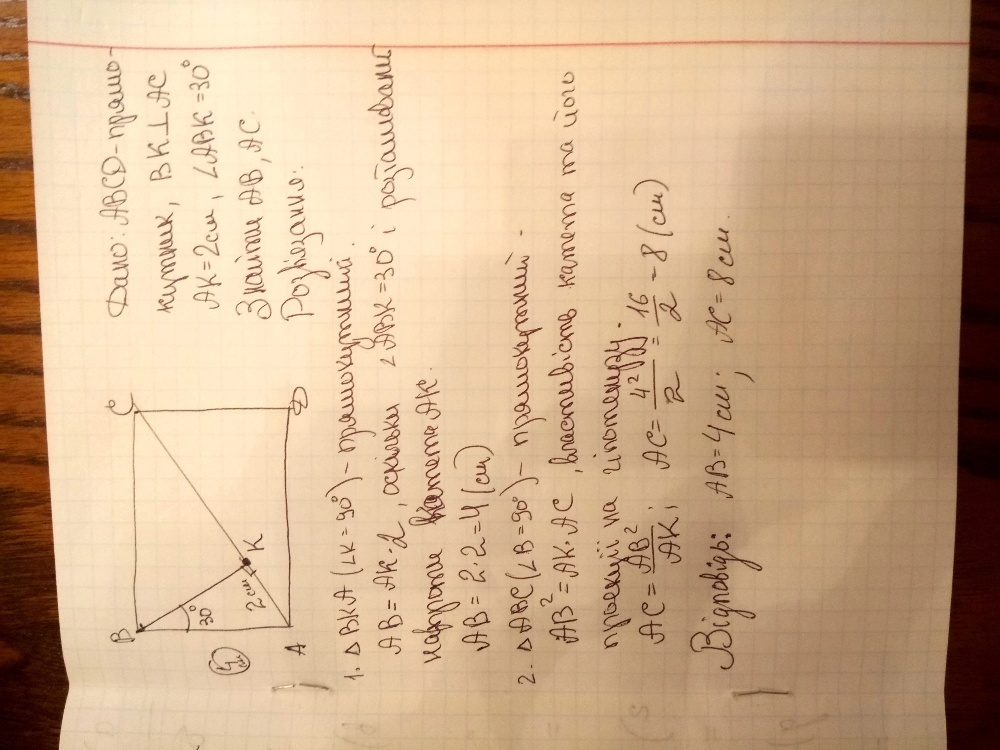 B
C
30°
2см
K
A
D
Дано: ABCD - прямо-
кутник, BK⊥AC
AK=2см, ∠ABK=30°
Знайти AB, AC.
Розв'язання:
1. ΔBKA (∠K=90°) - прямокутний.
AB = AK·2, оскільки ∠ABK=30° і розташований
навпроти катета AK.
AB = 2·2=4 (см)
2. ΔABC (∠B=90°) - прямокутний.
AB² = AK·AC, властивість катета та його
проекції на гіпотенузу.
AC = AB²/AK; AC = 4²/2 = 16/2 - 8 (см)
Відповідь: AB=4 см; AC=8 см.